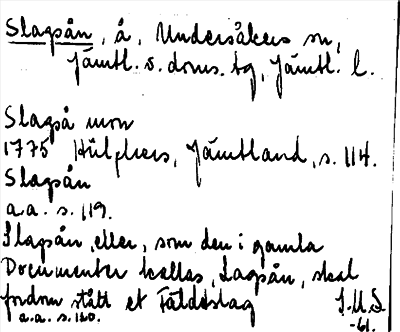 Slagsån, å, Undersåkers sn,
Jämtl. s. doms. tg, Jämtl. l.
Slagså mon
1775 Hülphers, Jämtland, s. 114.
Slagsån
a.a. s. 119.
Slagsån, eller, som den i gamla
Documenter kallas, Lagsån, skal
fordom stått et Fältslag
a.a. s. 120.
-61.